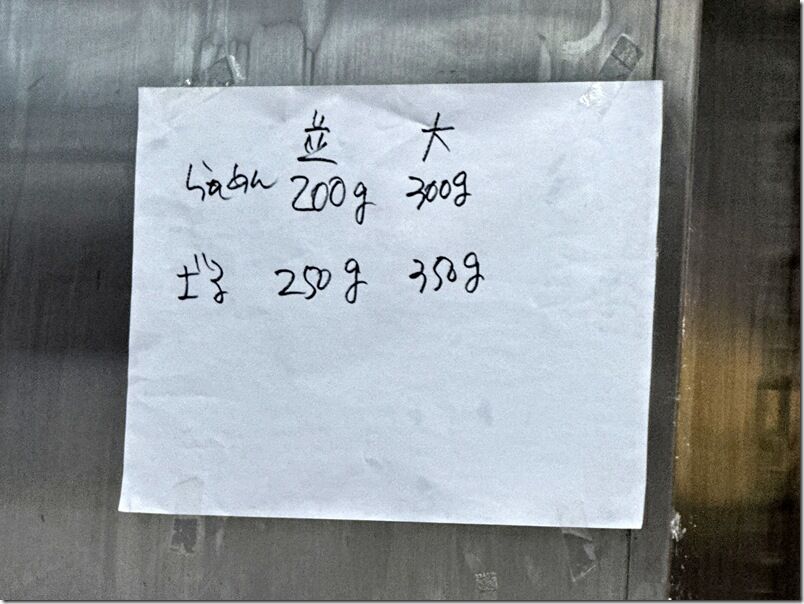 並 大
らぁめん 200g 300g
250g 350g